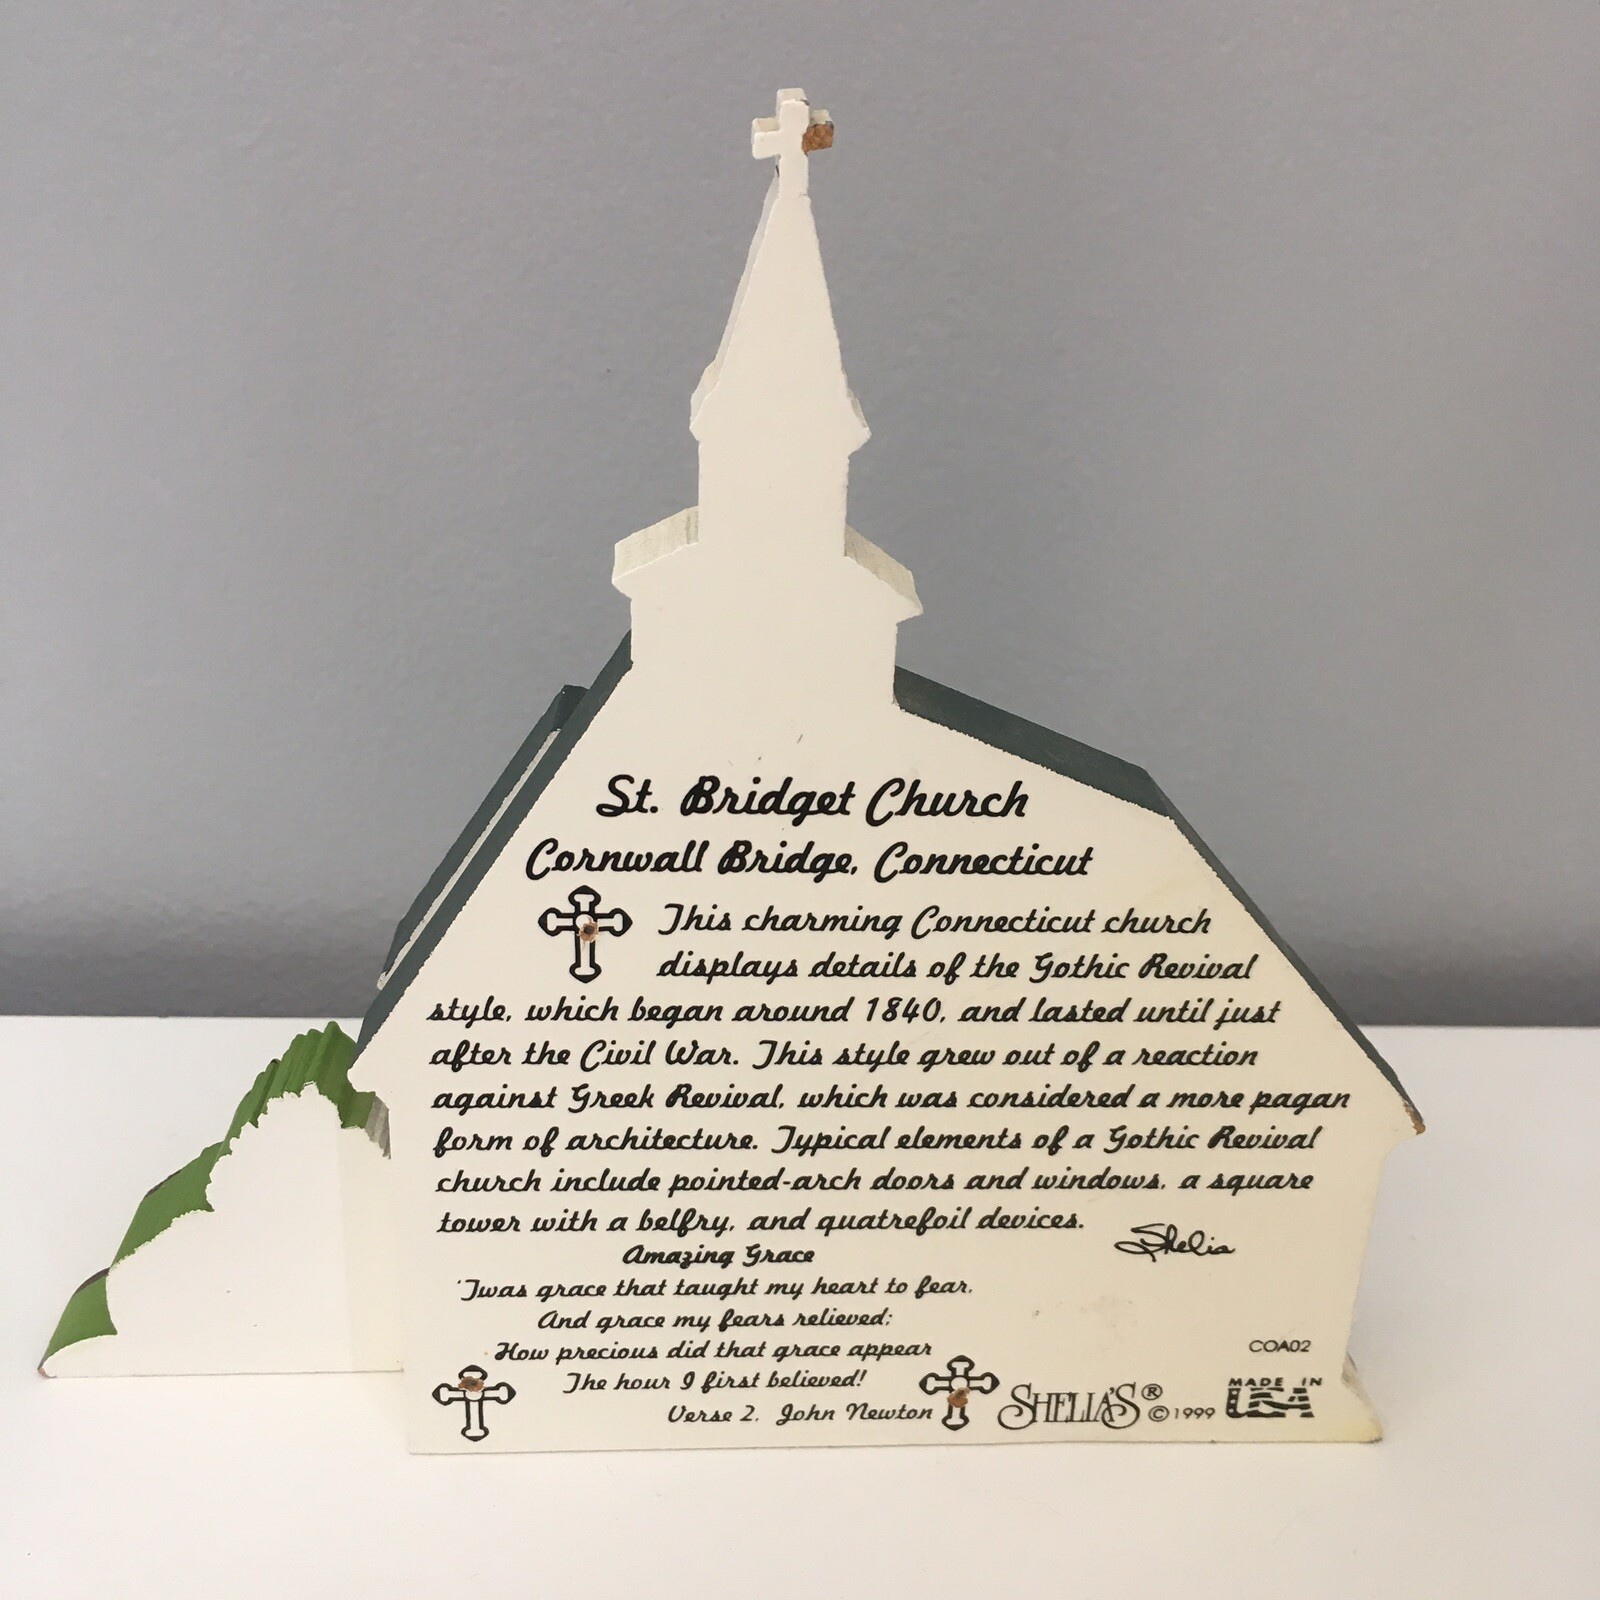 St. Bridget Church
Cornwall Bridge, Connecticut
This charming Connecticut church
displays details of the Gothic Revival
style, which began around 1840, and lasted until just
after the Civil War. This style grew out of a reaction
against Greek Revival, which was considered a more pagan
form of architecture. Typical elements of a Gothic Revival
church include pointed-arch doors and windows, a square
tower with a belfry, and quatrefoil devices.
Shelia
Amazing Grace
'Twas grace that taught my heart to fear,
And grace my fears relieved;
How precious did that grace appear
The hour I first believed!
Verse 2, John Newton
SHELIA'S® ©1999
COA02
MADE IN
USA